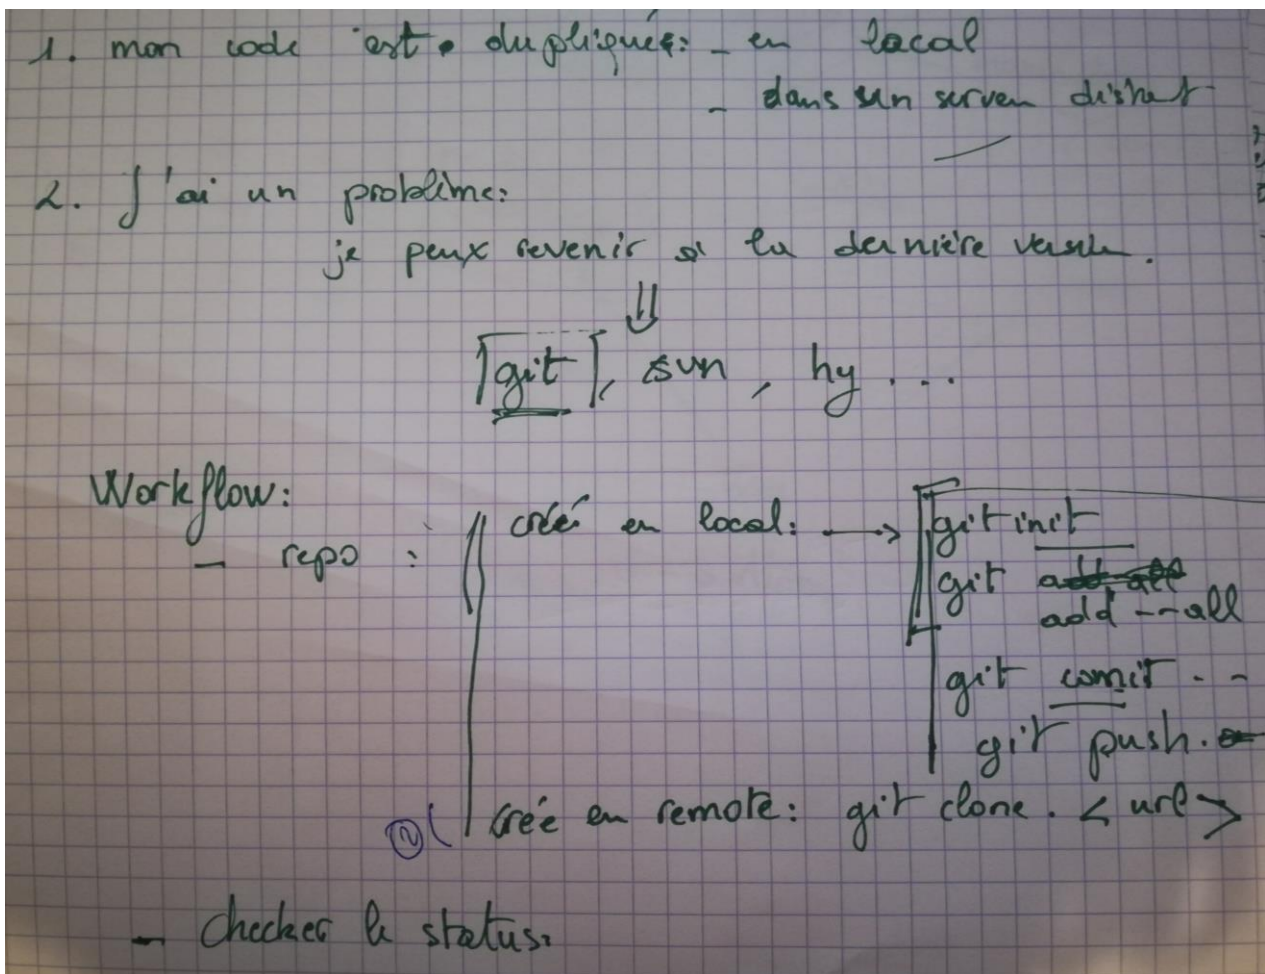 1. mon code est dupliqué: - en local
- dans un serveu distant
2. J'ai un problème:
je peux revenir à la dernière version.
⇓
git, svn, hg ...
Workflow:
- repo :
créé en local: → git init
git add all
add --all
git comit --
git push.
② créé en remote: git clone. < url >
- checker le status.